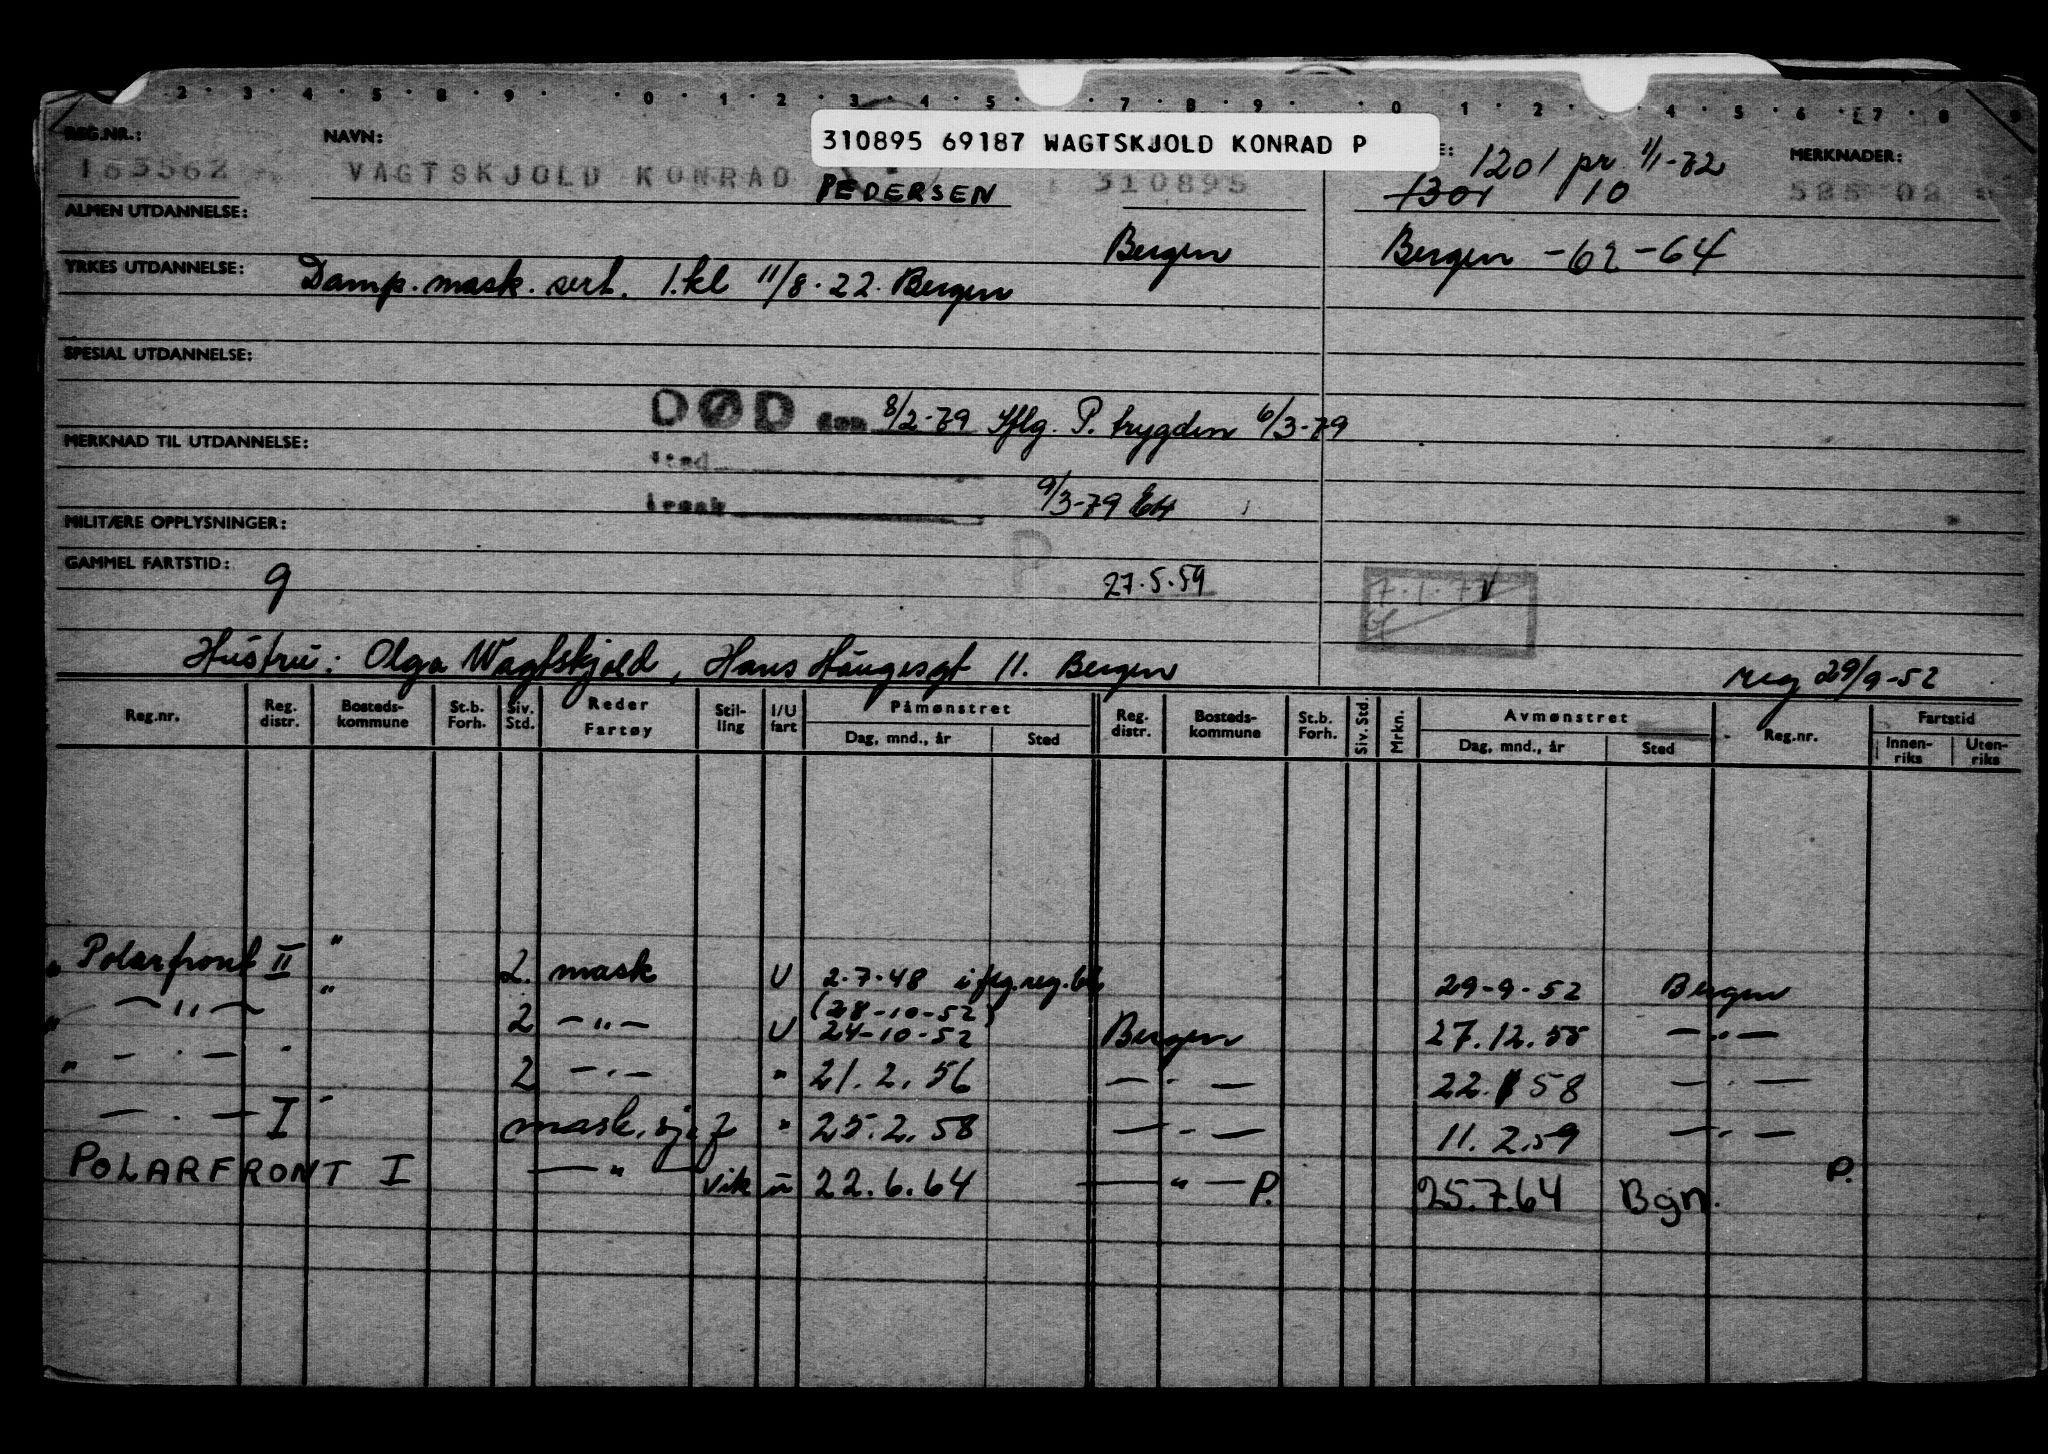 2 · 3 · 4 · 5 · 8 · 9 · · 0 · 1 · 2 · 3 · 4 · 5 · 7 · 8 · 9 · · 0 · 1 · 2 · 4 · 5 · 6 · 7 · 8 9
310895 69187 WAGTSKJOLD KONRAD P
REG.NR.: NAVN: E: 1201 pr. 1/1-72 MERKNADER:
163562 VAGTSKJOLD KONRAD 310895 1301 10
PEDERSEN
ALMEN UTDANNELSE:
Bergen Bergen -62-64
YRKES UTDANNELSE: Damp. mask. sert. 1.kl 11/8.22. Bergen
SPESIAL UTDANNELSE:
DØD den 8/2-79 Iflg. P. trygden 6/3-79
MERKNAD TIL UTDANNELSE:
sted
9/3-79 EH
årsak
MILITÆRE OPPLYSNINGER:
P.
GAMMEL FARTSTID: 9 27.5.59 7.1.71
Hustru: Olga Wagtskjold, Hans Haugesgt 11. Bergen reg 29/9-52
Reg.nr. Reg. distr. Bosteds-kommune St.b. Forh. Siv. Std. Reder Fartøy Stil-ling I/U fart Påmønstret Dag, mnd., år Sted Reg. distr. Bosteds-kommune St.b. Forh. Siv. Std. Mrkn. Avmønstret Dag, mnd., år Sted Reg.nr. Fartstid Innen-riks Uten-riks
" Polarfront II " 2. mask U 2.7.48 iflg.reg.bk 29-9-52 Bergen
(28-10-52)
" — " — " 2 — " — U 24-10-52 Bergen 27.12.55 — " —
" — " — " 2 — " — " 21.2.56 — " — 22.1 58 — " —
— " — I " mask.sjef " 25.2.58 — " — 11.2.59 — " —
POLARFRONT I — " — vik u 22.6.64 — " — P. 25.7.64 Bgn. P.